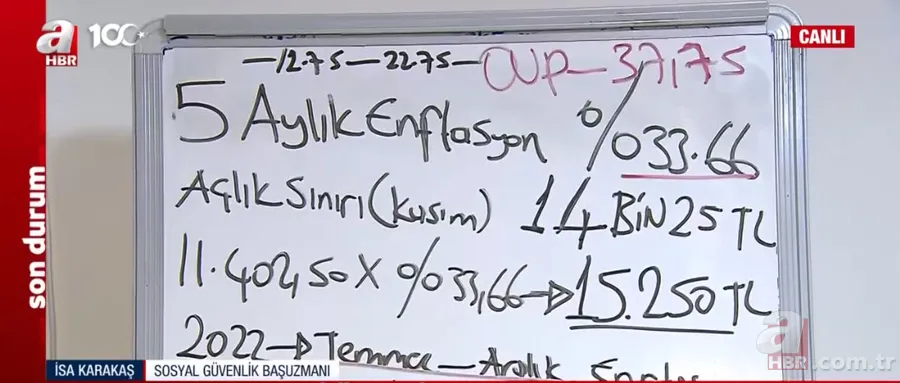 a HBR 100
CANLI
son durum
—12.75—22.75—OVP—37,75
5 Aylık Enflasyon %033.66
Açlık Sınırı (Kasım) 14 BİN 25 TL
11.402,50 X %033,66→15.250 TL
2022→Temmuz—Aralık
İSA KARAKAŞ SOSYAL GÜVENLİK BAŞUZMANI
a HBR.com.tr